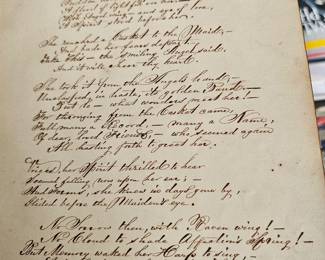 She reached a Casket to the Maid,—
And bade her fears depart,—
Take this — the smiling Angel said,
And it will cheer thy heart.
She took it from the Angels hand,—
Unclasped, in haste, its golden Band,—
But lo — what wonders meet her!—
For thronging from the Casket came
Full many a Record, — many a Name,
Of dear, loved Friends,— who seemed again
All hasting forth to greet her.
Voices, her Spirit thrilled to hear
Seemed falling now upon her ear;—
And Forms, she knew in days gone by,
Glided before the Maiden's eye.
No Sorrow then, with Raven wing!—
No Cloud to shade Affection's Spring!—
But Memory waked her Harp to sing,—